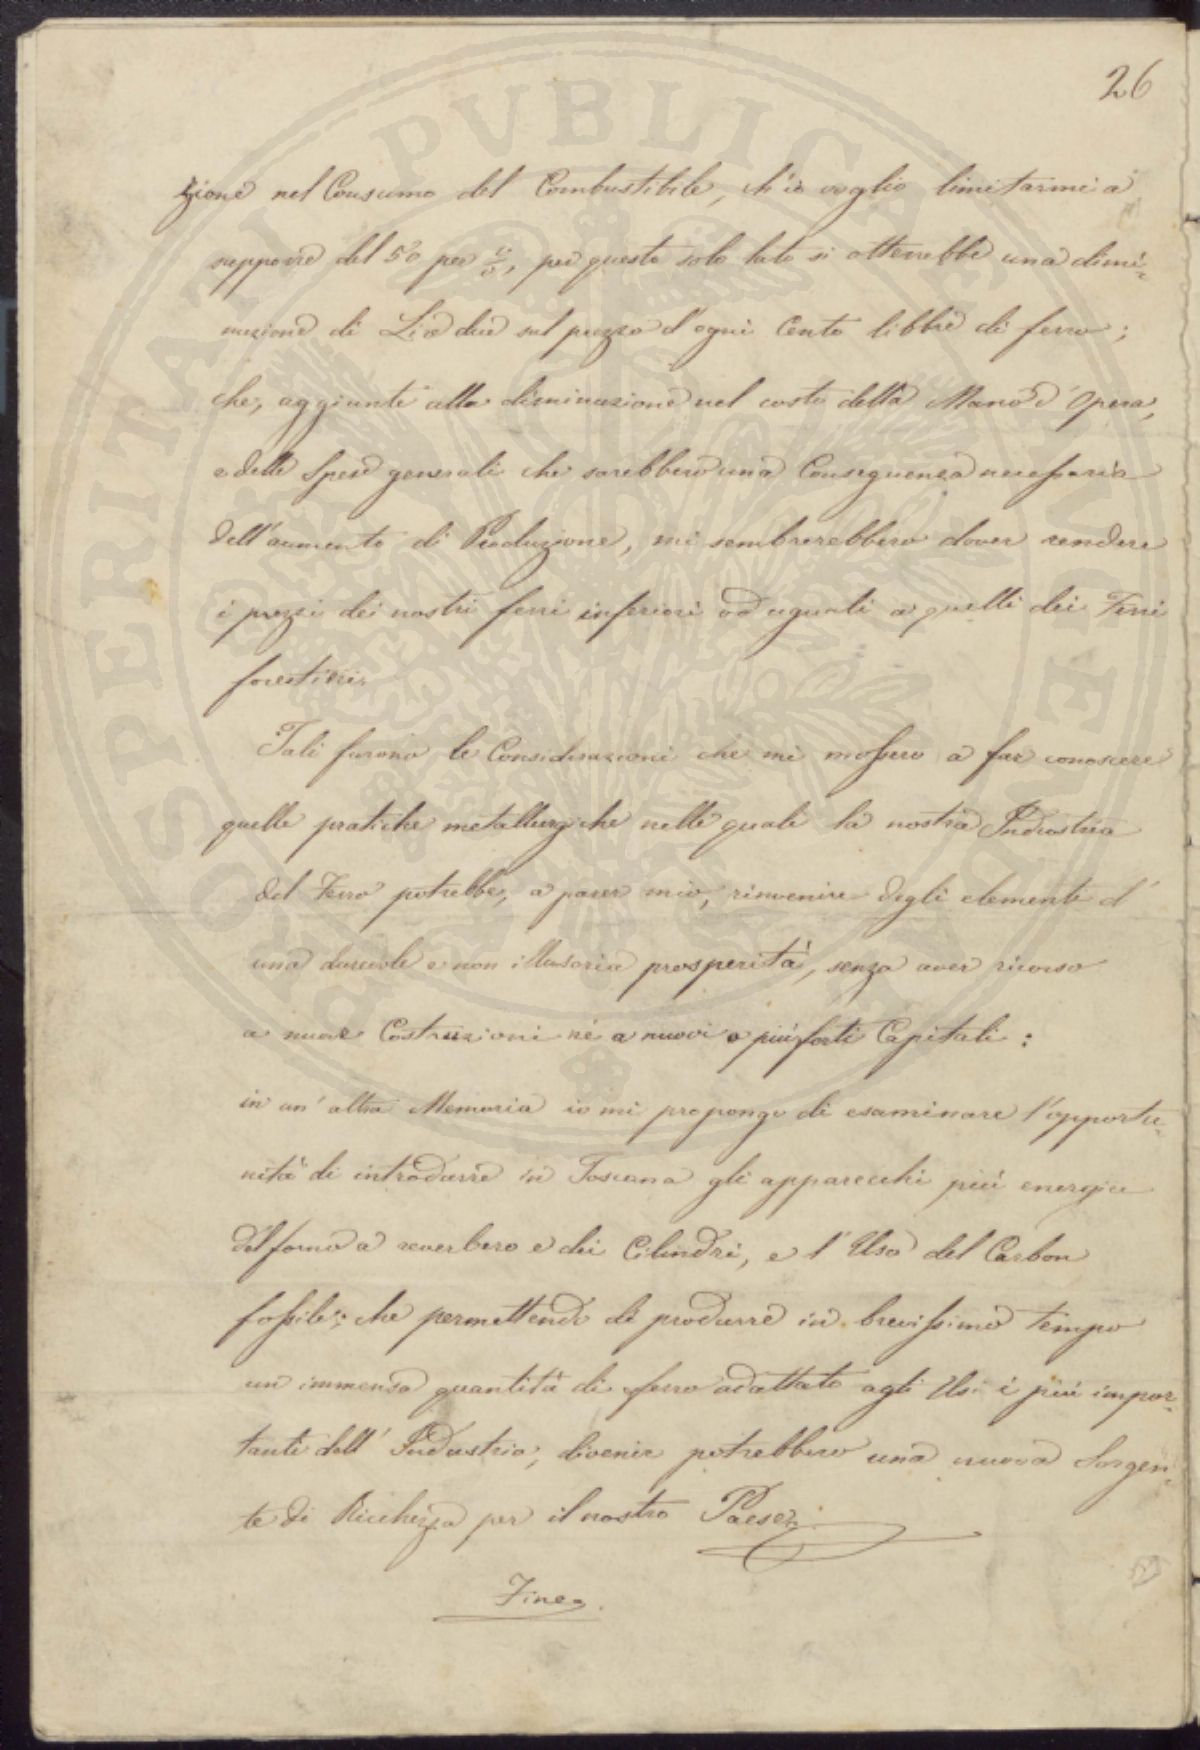 26
zione nel Consumo del Combustibile, ch'io voglio limitarmi a
supporre del 50 per %, per questo solo lato si otterrebbe una dimi-
nuzione di Lire due sul prezzo d'ogni Cento libbre di ferro;
che, aggiunte alla diminuzione nel costo della Mano d'Opera,
e delle Spese generali che sarebbero una Conseguenza necessaria
dell'aumento di Produzione, mi sembrerebbero dover rendere
i prezzi dei nostri ferri inferiori od uguali a quelli dei Ferri
forestieri.
Tali furono le Considerazioni che mi mossero a far conoscere
quelle pratiche metallurgiche nelle quali la nostra Industria
del Ferro potrebbe, a parer mio, rinvenire degli elementi d'
una durevole e non illusoria prosperità, senza aver ricorso
a nuove Costruzioni nè a nuovi o più forti Capitali:
in un'altra Memoria io mi propongo di esaminare l'opportu-
nità di introdurre in Toscana gli apparecchi più energici
del forno a reverbero e dei Cilindri, e l'Uso del Carbon
fossile; che permettendo di produrre in brevissimo tempo
un immensa quantità di ferro adattato agli Usi i più impor-
tanti dell'Industria, divenir potrebbero una nuova Sorgen-
te di Ricchezza per il nostro Paese.
Fine.
PROSPERITATI PUBLICAE AUGENDAE